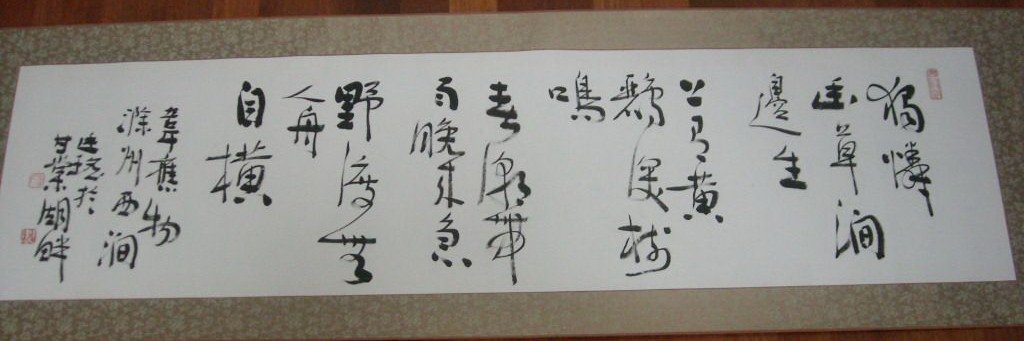 獨憐
幽草澗
邊生
上有黃
鸝深樹
鳴
春潮帶
雨晚來急
野渡無
人舟
自橫
韋應物
滁州西澗
於
甘棠湖畔